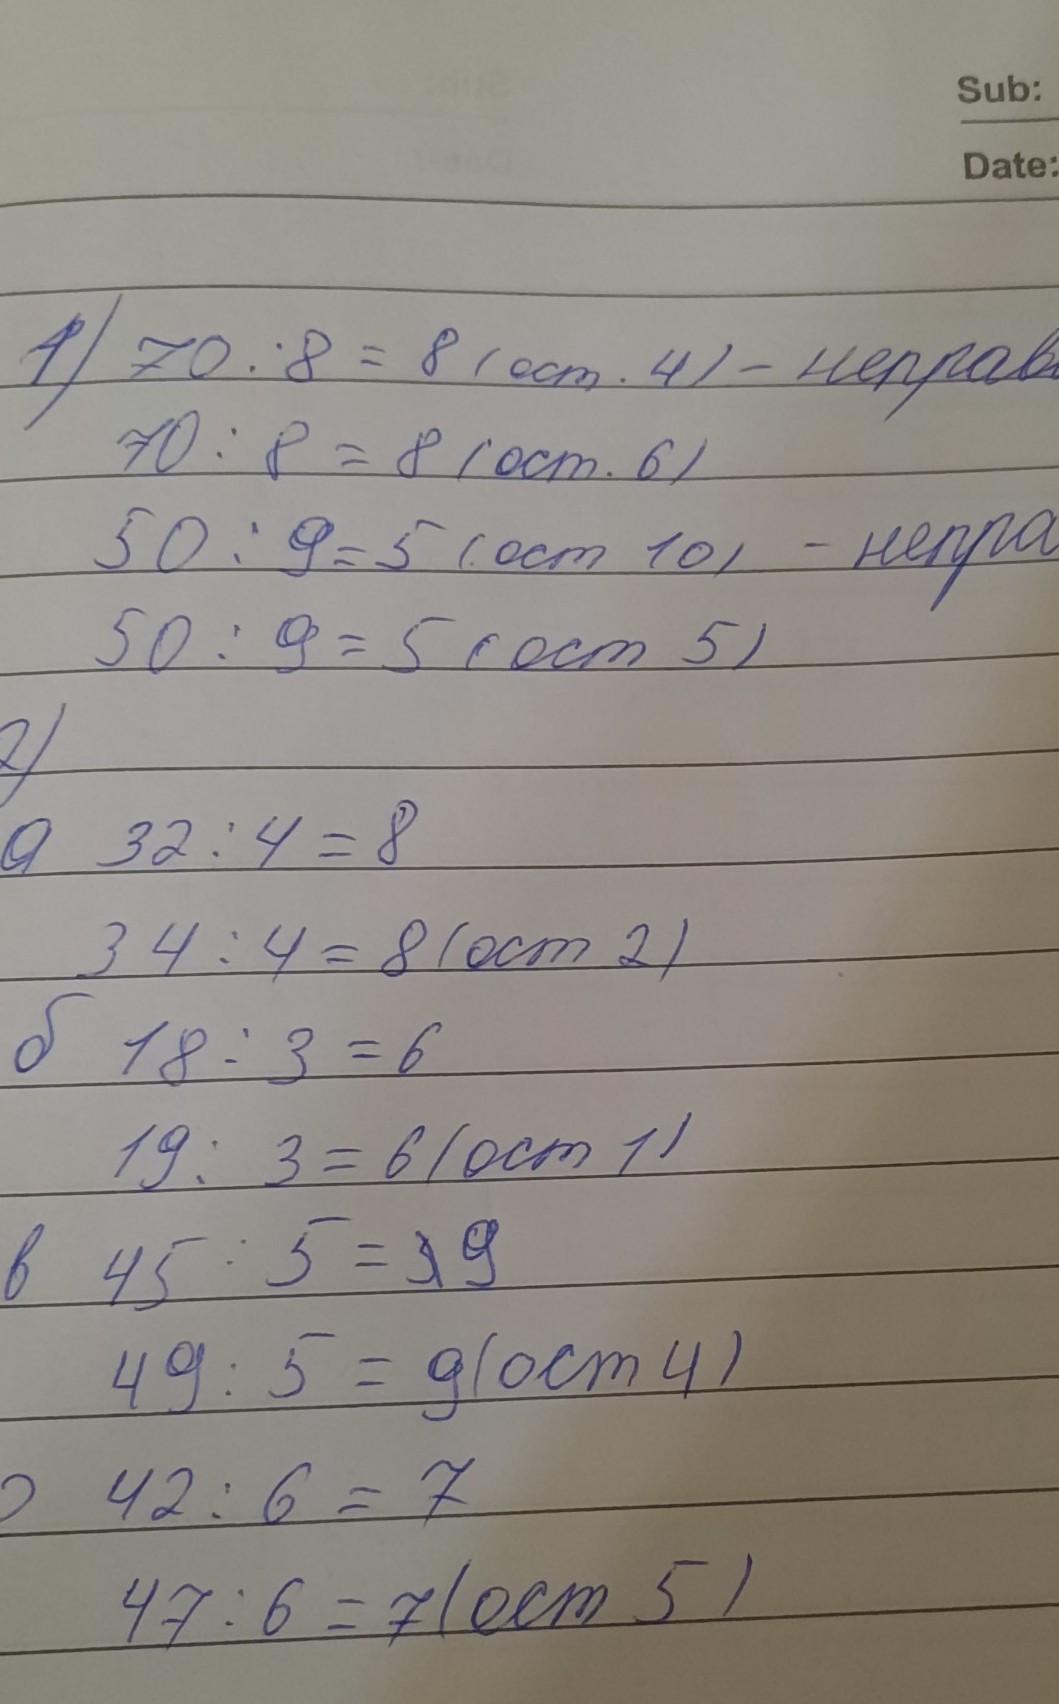 Sub:
Date:
1) 70 : 8 = 8 (ост. 4) - неправ
70 : 8 = 8 (ост. 6)
50 : 9 = 5 (ост 10) - непра
50 : 9 = 5 (ост 5)
2)
а 32 : 4 = 8
34 : 4 = 8 (ост 2)
б 18 : 3 = 6
19 : 3 = 6 (ост 1)
в 45 : 5 = 9
49 : 5 = 9 (ост 4)
42 : 6 = 7
47 : 6 = 7 (ост 5)